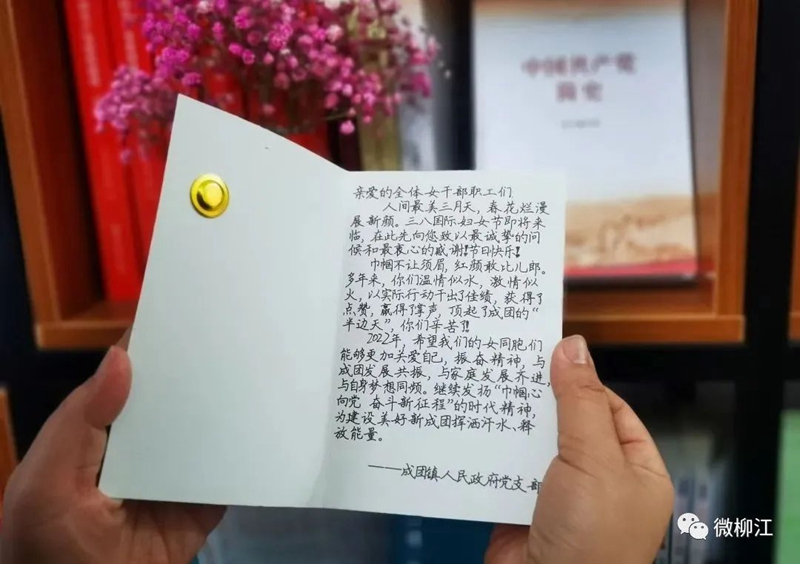 中国共产党
简史
亲爱的全体女干部职工们
人间最美三月天，春花烂漫
展新颜。三八国际妇女节即将来
临，在此先向您致以最诚挚的问
候和最衷心的感谢！节日快乐！
巾帼不让须眉，红颜敢比儿郎。
多年来，你们温情似水，激情似
火，以实际行动干出了佳绩，获得了
点赞，赢得了掌声，顶起了成团的“
半边天”，你们辛苦了！
2022年，希望我们的女同胞们
能够更加关爱自己，振奋精神，与
成团发展共振，与家庭发展齐进，
与自身梦想同频。继续发扬“巾帼心
向党 奋斗新征程”的时代精神，
为建设美好新成团挥洒汗水、释
放能量。
——成团镇人民政府党支部
微柳江